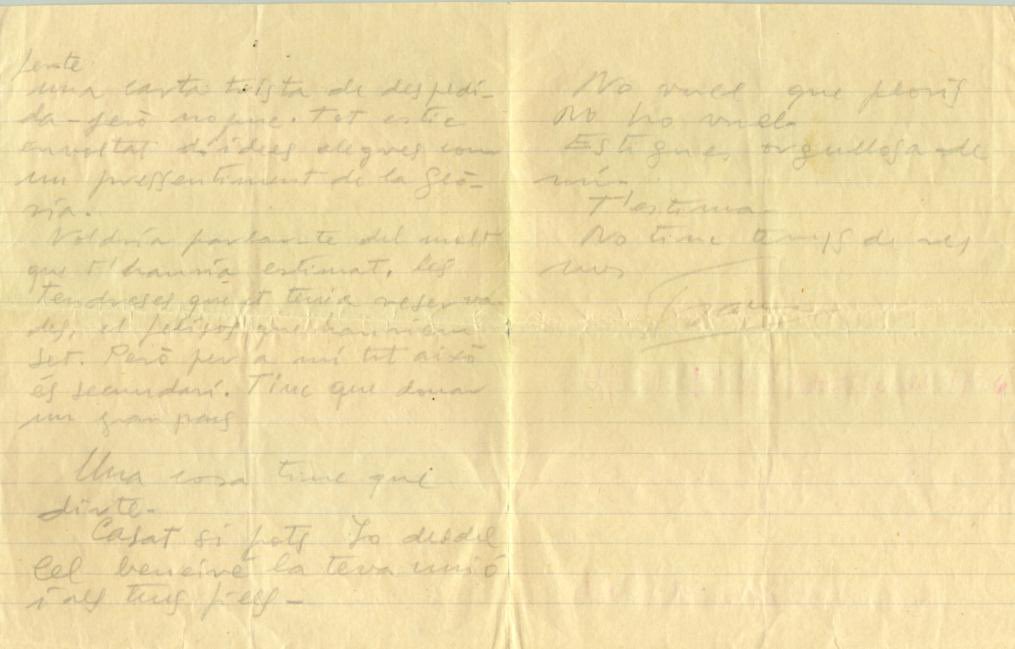 ferte
una carta trista de despedi-
da - però no puc. Tot estic
envoltat d'idees alegres com
un pressentiment de la Glò-
ria.
Voldria parlarte del molt
que t'hauria estimat, les
tendreses que et tenia reserva
des, el felisos que hauriem
set. Però per a mi tot això
és secundari. Tinc que donar
un gran pas
Una cosa tinc que
dirte-
Casat si pots Jo desdel
Cel beneiré la teva unió
i als teus fills -
No vuel que ploris
No ho vuel.
Estigues orgullosa de
mi.
T'estima-
No tinc temps de res
mes